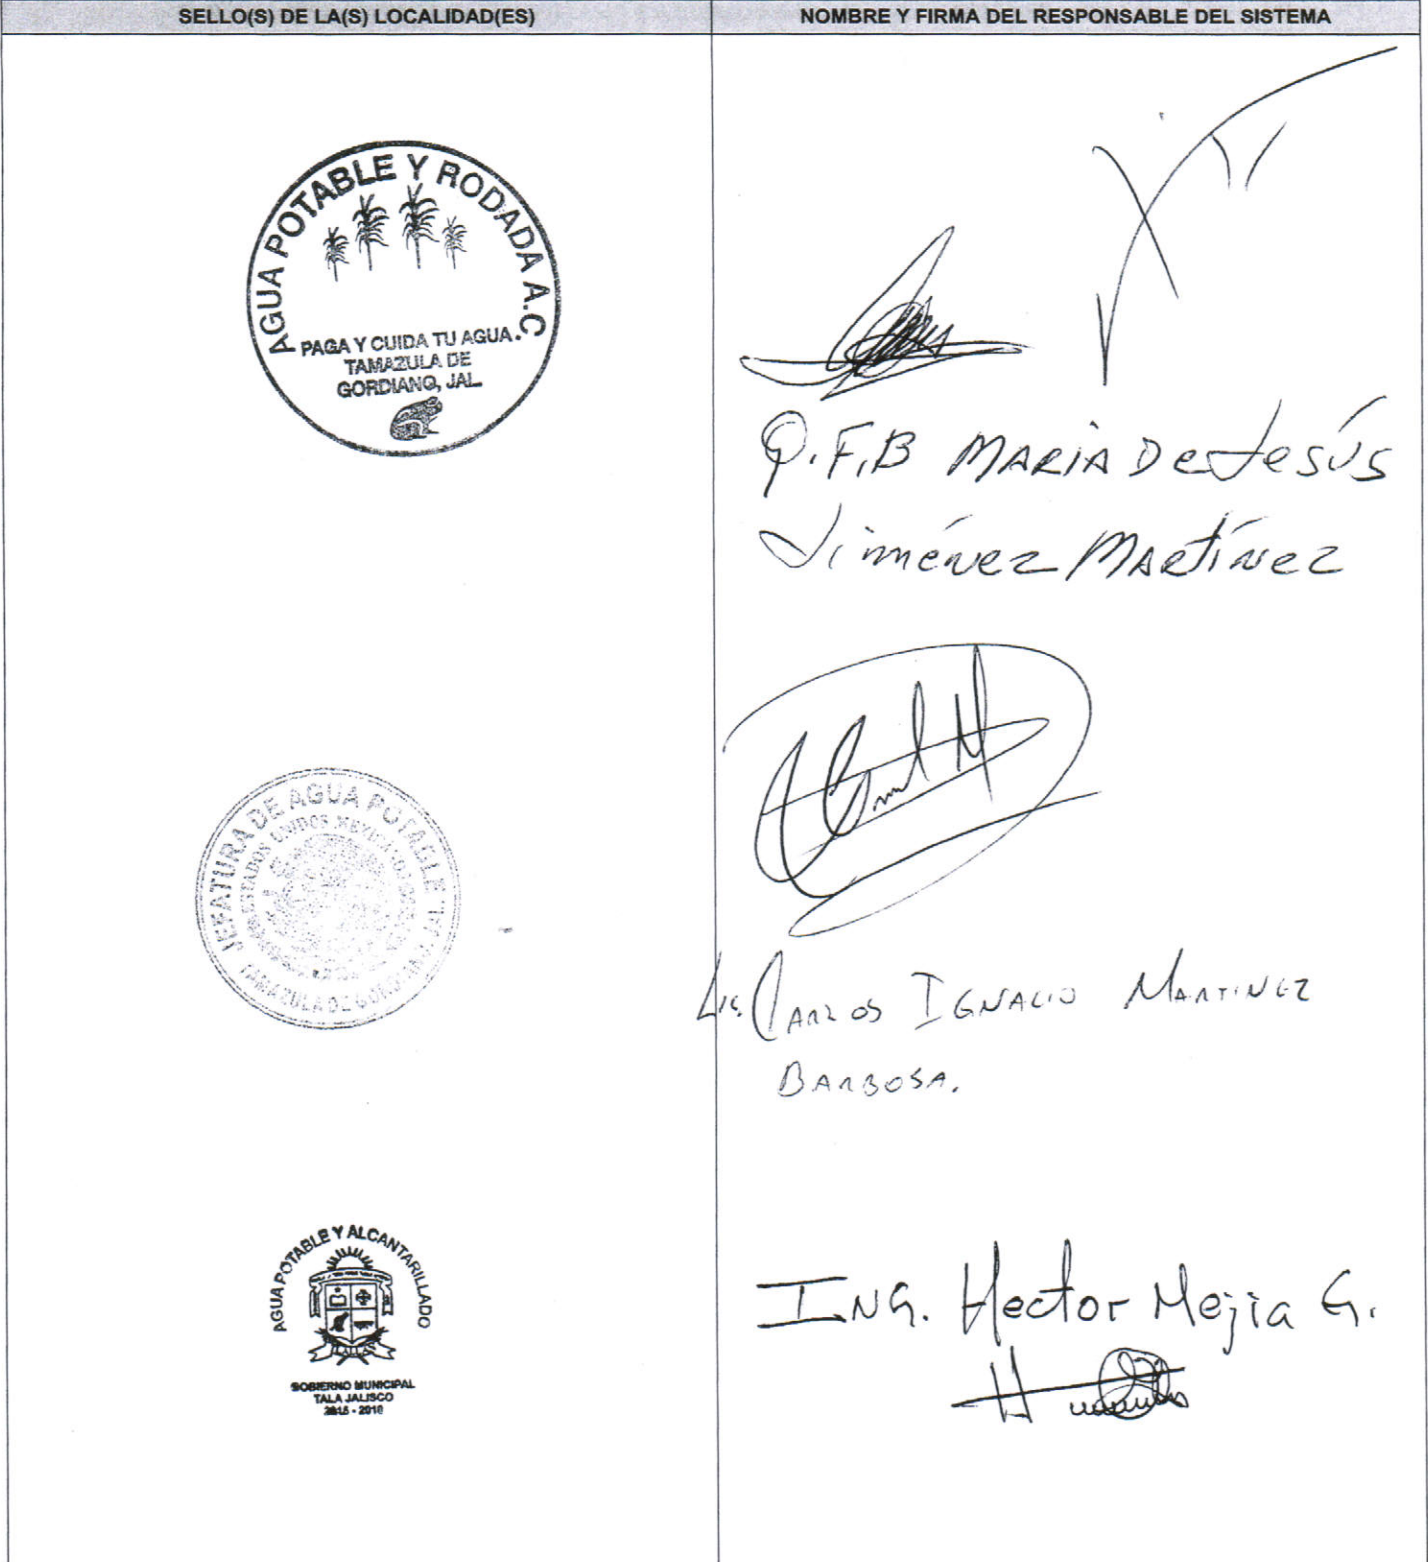 SELLO(S) DE LA(S) LOCALIDAD(ES)
NOMBRE Y FIRMA DEL RESPONSABLE DEL SISTEMA
AGUA POTABLE Y RODADA A.C
PAGA Y CUIDA TU AGUA.
TAMAZULA DE
GORDIANO, JAL.
Q.F.B MARIA De Jesús
Jiménez Martínez
JEFATURA DE AGUA POTABLE
ESTADOS UNIDOS MEXICANOS
TAMAZULA DE GORDIANO, JAL.
Lic. CARLOS IGNACIO MARTINEZ
BARBOSA.
AGUA POTABLE Y ALCANTARILLADO
GOBIERNO MUNICIPAL
TALA JALISCO
ING. Hector Mejia G.